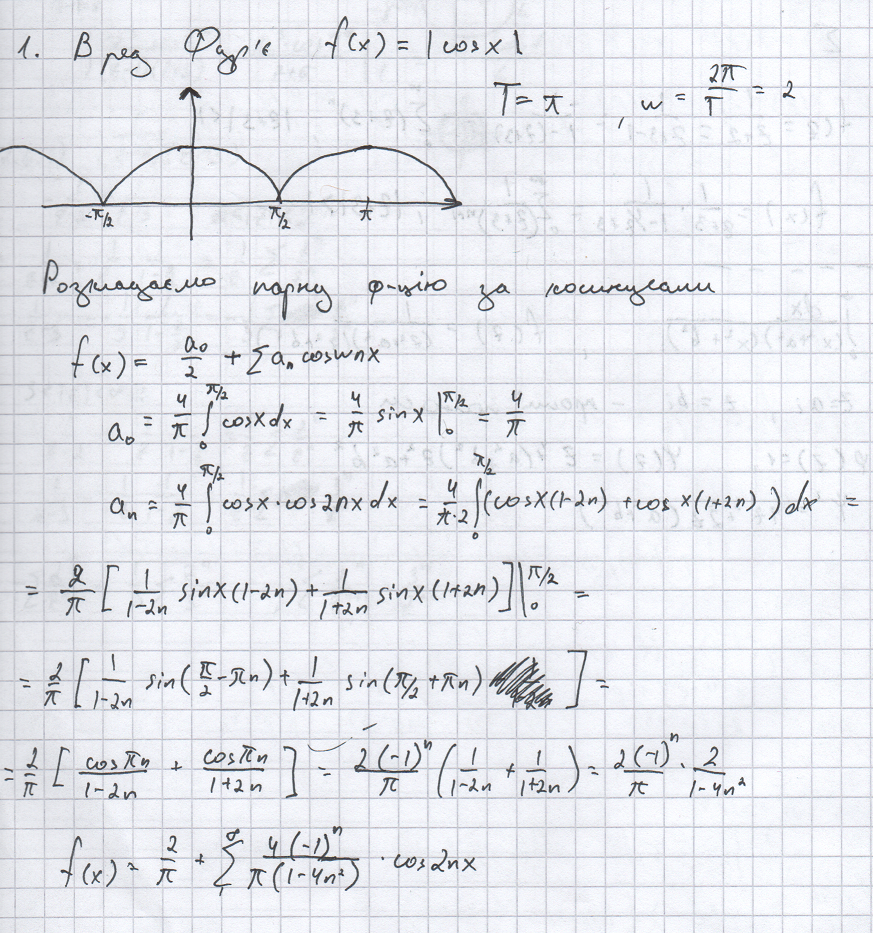 1. В ряд Фур'є f(x) = |cosx|
T = π , w = 2π/T = 2
-π/2 π/2 π
Розкладаємо парну ф-цію за косинусами
f(x) = a₀/2 + ∑ aₙ coswnx
a₀ = 4/π ∫₀^{π/2} cosx dx = 4/π sinx |₀^{π/2} = 4/π
aₙ = 4/π ∫₀^{π/2} cosx · cos2nx dx = 4/(π·2) ∫₀^{π/2} (cosx(1-2n) + cosx(1+2n)) dx =
= 2/π [ 1/(1-2n) sinx(1-2n) + 1/(1+2n) sinx(1+2n) ] |₀^{π/2} =
= 2/π [ 1/(1-2n) sin(π/2 - πn) + 1/(1+2n) sin(π/2 + πn) ] =
= 2/π [ cosπn/(1-2n) + cosπn/(1+2n) ] = 2(-1)ⁿ/π ( 1/(1-2n) + 1/(1+2n) ) = 2(-1)ⁿ/π · 2/(1-4n²)
f(x) = 2/π + ∑₁^∞ 4(-1)ⁿ/(π(1-4n²)) · cos2nx